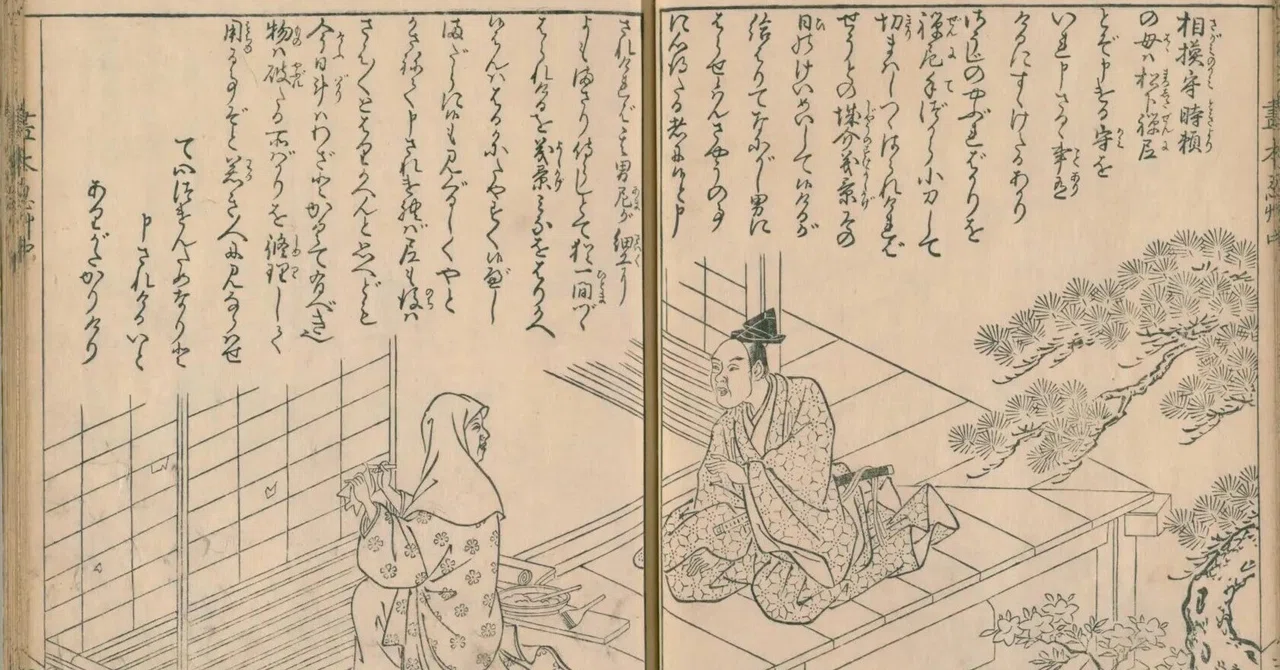 相摸守時頼
の母は松下禅尼
とぞ申ける守を
いれ申さるゝ事あり
けるにすゝけたるあかり
しやうじのやぶればかりを
禅尼手づから小刀して
切まはしつゝはられければ
せうとの城介義景その
日のけいめいして候けるが
給はりてなにがし男に
はらせ候はんさやうの事
に心得たる者に候と申
されければその男尼が細工に
よもまさり侍らじとて猶一間づゝ
はられけるを義景みなをはりかへ
候はんははるかにたやすく候べし
まだらに候も見ぐるしくやと
かさねて申されければ尼も後は
さは〳〵とはりかへんと思へども
今日斗はわざとかくて有べき也
物は破たる所ばかりを修理して
用る事ぞと若き人に見ならはせて
申されけるいと
ありがたかりけり